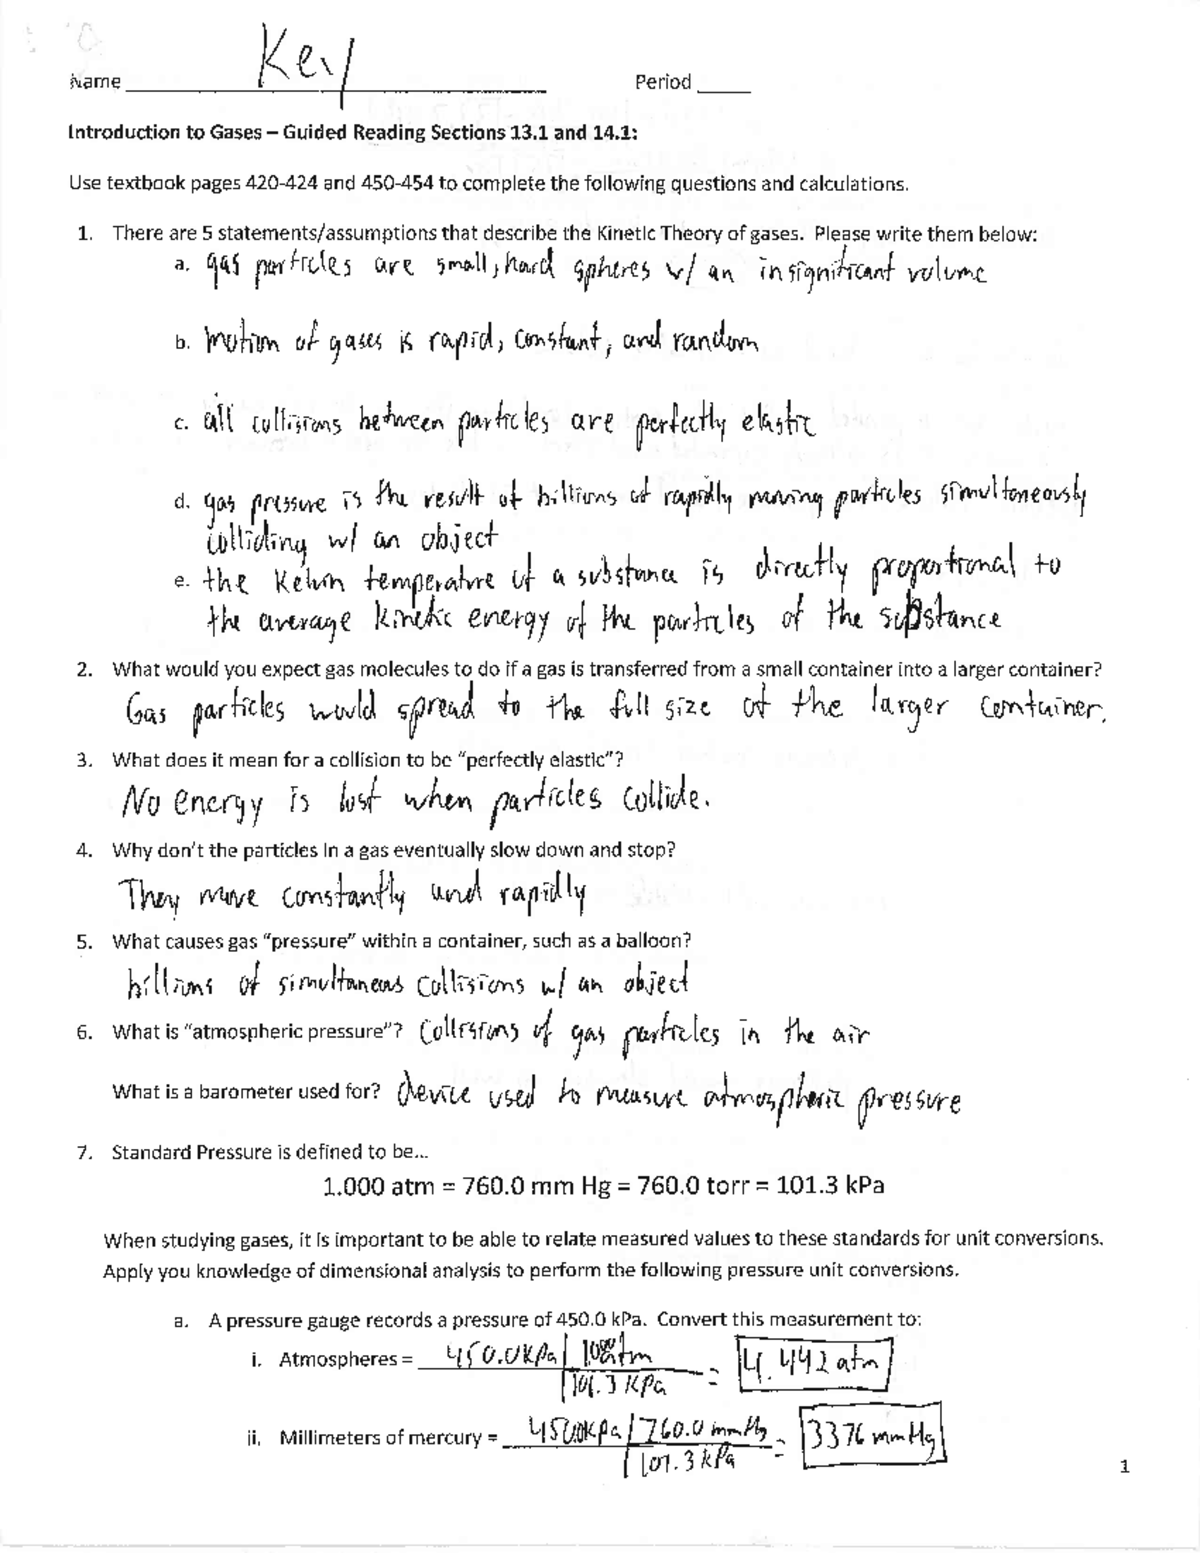 Name Key Period
Introduction to Gases – Guided Reading Sections 13.1 and 14.1:
Use textbook pages 420-424 and 450-454 to complete the following questions and calculations.
1. There are 5 statements/assumptions that describe the Kinetic Theory of gases. Please write them below:
a. gas particles are small, hard spheres w/ an insignificant volume
b. motion of gases is rapid, constant, and random
c. all collisions between particles are perfectly elastic
d. gas pressure is the result of billions of rapidly moving particles simultaneously
colliding w/ an object
e. the Kelvin temperature of a substance is directly proportional to
the average kinetic energy of the particles of the substance
2. What would you expect gas molecules to do if a gas is transferred from a small container into a larger container?
Gas particles would spread to the full size of the larger container.
3. What does it mean for a collision to be “perfectly elastic”?
No energy is lost when particles collide.
4. Why don’t the particles in a gas eventually slow down and stop?
They move constantly and rapidly
5. What causes gas “pressure” within a container, such as a balloon?
billions of simultaneous collisions w/ an object
6. What is “atmospheric pressure”? Collisions of gas particles in the air
What is a barometer used for? device used to measure atmospheric pressure
7. Standard Pressure is defined to be...
1.000 atm = 760.0 mm Hg = 760.0 torr = 101.3 kPa
When studying gases, it is important to be able to relate measured values to these standards for unit conversions.
Apply you knowledge of dimensional analysis to perform the following pressure unit conversions.
a. A pressure gauge records a pressure of 450.0 kPa. Convert this measurement to:
i. Atmospheres = 450.0kPa | 1.000atm
| 101.3 kPa = 4.442 atm
ii. Millimeters of mercury = 450.0kPa | 760.0 mmHg
| 101.3 kPa = 3376 mmHg
1